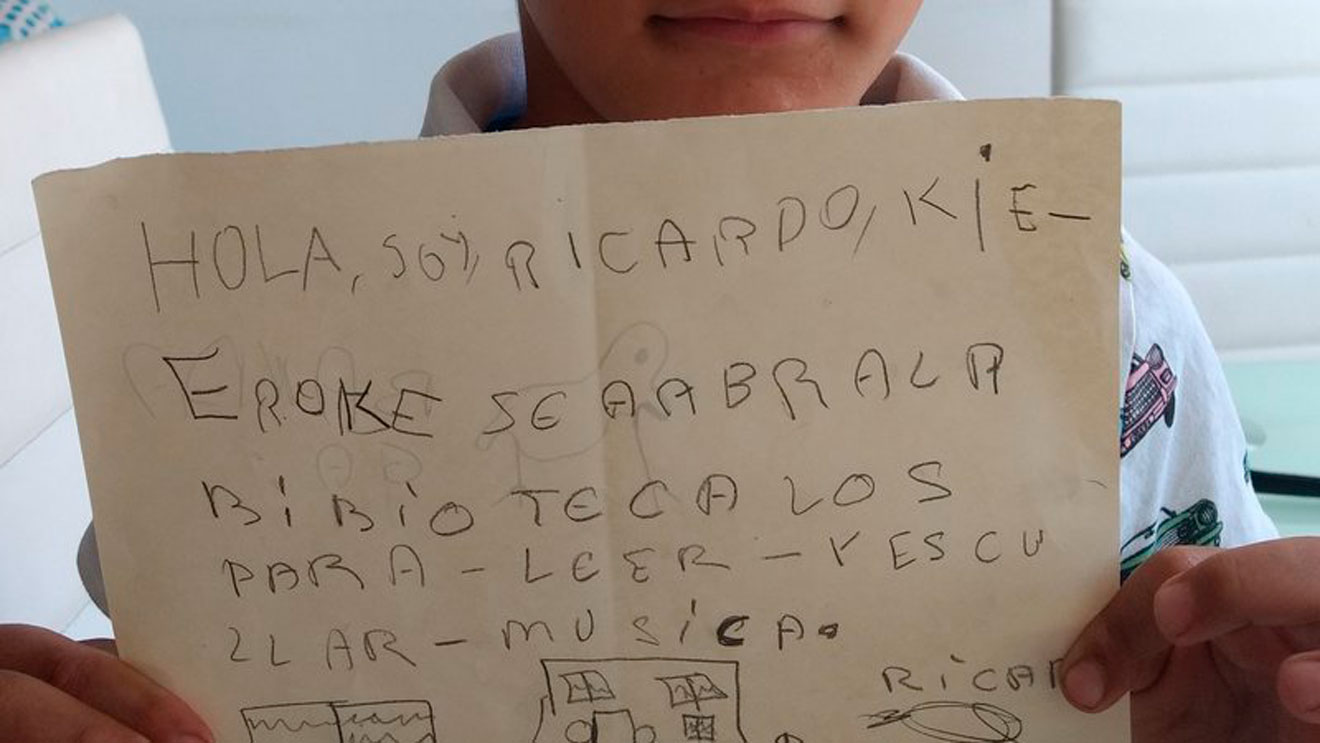 HOLA, SOY, RICARDO, KIE-
EROKE SEAABRALA
BIBIOTECA LOS
PARA - LEER - YESCU
LLAR - MUSICA.
RICAR